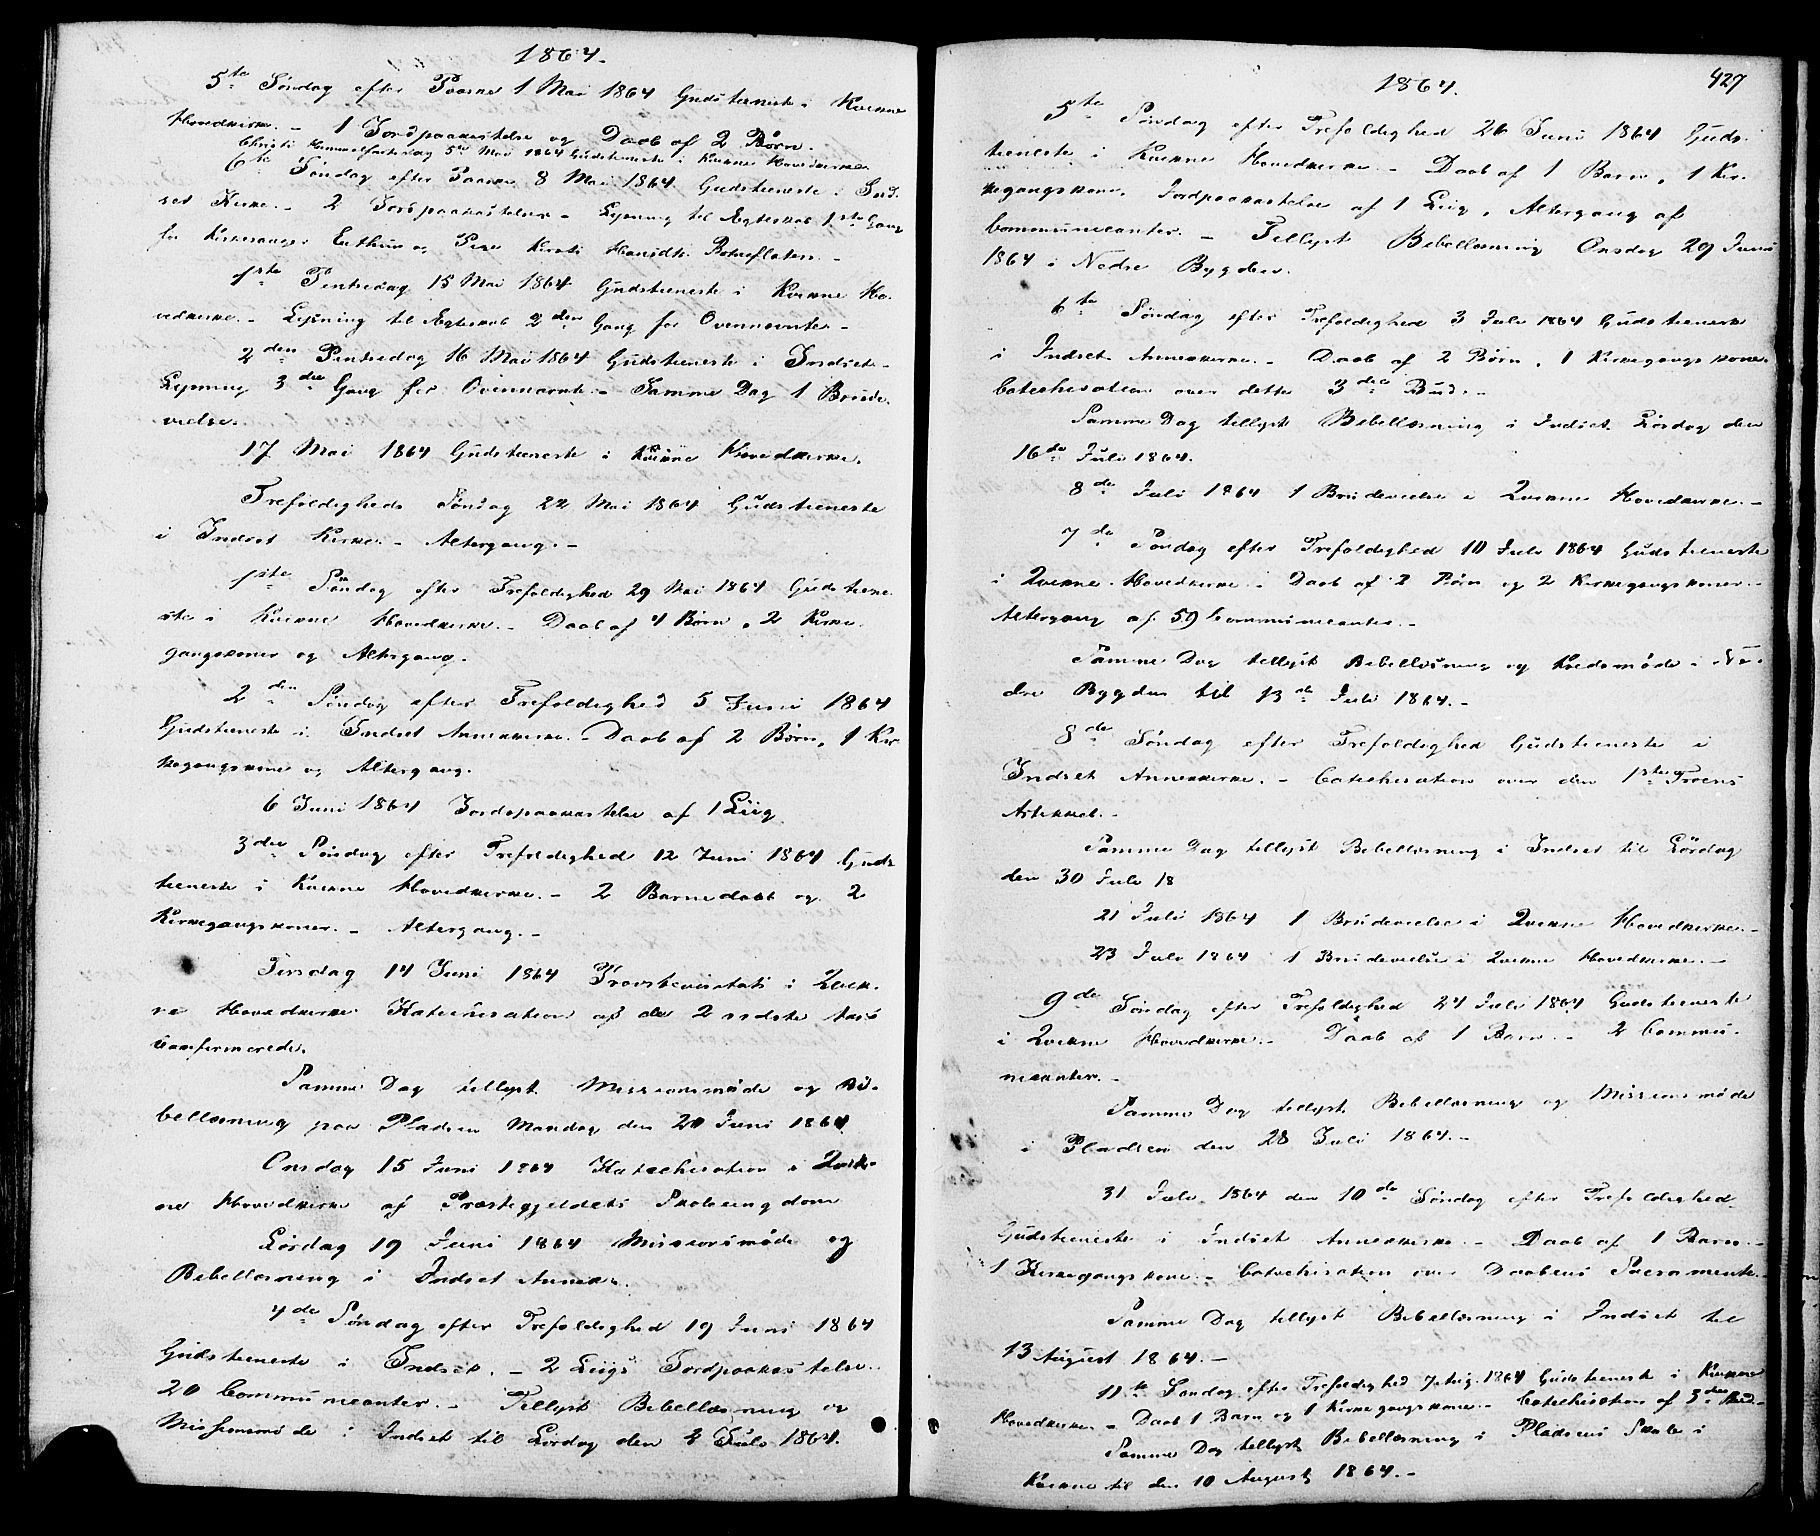 1864.
5te Søndag efter Paaske 1 Mai 1864 Gudstieneste i Kvikne
Hovedkirke. – 1 Jordpaakastelse og Daab af 2 Børn.
Christi Himmelfartsdag 5te Mai 1864 Gudstieneste i Kvikne Hovedkirke
6te Søndag efter Paaske 8 Mai 1864 Gudstieneste i Ind-
set Kirke. – 2 Jordpaakastelser – Lysning til Ægteskab 1ste Gang
for Kirkesanger og Pige Kirsti Hansdtr.
1ste Pintsedag 15 Mai 1864 Gudstieneste i Kvikne Ho-
vedkirke. – Lysning til Ægteskab 2den Gang for Ovennævnte –
2den Pintsedag 16 Mai 1864 Gudstieneste i Indset –
Lysning 3die Gang for Ovennævnte – Samme Dag 1 Brude-
vielse.
17 Mai 1864 Gudstieneste i Kvikne Hovedkirke.
Trefoldigheds Søndag 22 Mai 1864 Gudstieneste
i Indset Kirke. – Altergang. –
1ste Søndag efter Trefoldighed 29 Mai 1864 Gudstiene-
ste i Kvikne Hovedkirke. – Daab af 4 Børn, 2 Kirke-
gangskoner og Altergang.
2den Søndag efter Trefoldighed 5 Juni 1864
Gudstieneste i Indset Annexkirke. – Daab af 2 Børn, 1 Kir-
kegangskone og Altergang.
6 Juni 1864 Jordspaakastelse af 1 Liig
3die Søndag efter Trefoldighed 12 Juni 1864 Guds-
tieneste i Kvikne Hovedkirke. – 2 Barnedaab og 2
Kirkegangskoner. – Altergang. –
Tirsdag 14 Juni 1864 Provstevisitats i Qvik-
ne Hovedkirke Katechisation af de 2 sidste Aars
Confirmerede.
Samme Dag tillyst Missionsmøde og Bi-
bellæsning paa Pladsen Mandag den 20 Juni 1864
Onsdag 15 Juni 1864 Katechisation i Qvik-
ne Hovedkirke af Præstegjeldets Skoleungdom
Lørdag 19 Juni 1864 Missionsmøde og
Bibellæsning i Indset Annex.
4de Søndag efter Trefoldighed 19 Juni 1864
Gudstieneste i Indset. – 2 Liigs Jordpaakastelse.
20 Communicanter. – Tillyst Bibellæsning og
Missionsmøde i Indset til Lørdag den 2 Juli 1864.
1864.
427
5te Søndag efter Trefoldighed 26 Juni 1864 Guds-
tieneste i Kvikne Hovedkirke. – Daab af 1 Barn, 1 Kir-
kegangskone, Jordpaakastelse af 1 Liig, Altergang af
Communicanter. – Tillyst Bibellæsning Onsdag 29 Juni
1864 i Nedre Bygden.
6te Søndag efter Trefoldighed 3 Juli 1864 Gudstieneste
i Indset Annexkirke. – Daab af 2 Børn, 1 Kirkegangskone
Catechisation over dette 3die Bud. –
Samme Dag tillyst Bibellæsning i Indset Lørdag den
16de Juli 1864.
8de Juli 1864 1 Brudevielse i Qvikne Hovedkirke. –
7de Søndag efter Trefoldighed 10 Juli 1864 Gudstieneste
i Qvikne Hovedkirke. Daab af 2 Børn og 2 Kirkegangskoner. –
Altergang af 59 Communicanter. –
Samme Dag tillyst Bibellæsning og Kredsmøde i Ne-
dre Bygden til 13de Juli 1864. –
8de Søndag efter Trefoldighed Gudstieneste i
Indset Annexkirke. – Catechisation over den 1ste Troens
Artikkel. –
Samme Dag tillyst Bibellæsning i Indset til Lørdag
den 30 Juli 18
21 Juli 1864 1 Brudevielse i Qvikne Hovedkirke. –
23 Juli 1864 1 Brudevielse i Qvikne Hovedkirke. –
9de Søndag efter Trefoldighed 24 Juli 1864 Gudstieneste
i Qvikne Hovedkirke. – Daab af 1 Barn. – 2 Commu-
nicanter. –
Samme Dag tillyst Bibellæsning og Missionsmøde
i Pladsen den 28 Juli 1864. –
31 Juli 1864 den 10de Søndag efter Trefoldighed
Gudstieneste i Indset Annexkirke. – Daab af 1 Barn. –
1 Kirkegangskone. – Catechisation over Daabens Sacramente. –
Samme Dag tillyst Bibellæsning i Indset til
13 August 1864. –
11te Søndag efter Trefoldighed 7 Aug. 1864 Gudstieneste i Kvikne
Hovedkirke. – Daab 1 Barn og 1 Kirkegangskone. – Catechisation af 3die Bud. –
Samme Dag tillyst Bibellæsning i Pladsens Skole i
Kvikne til den 10 August 1864. –